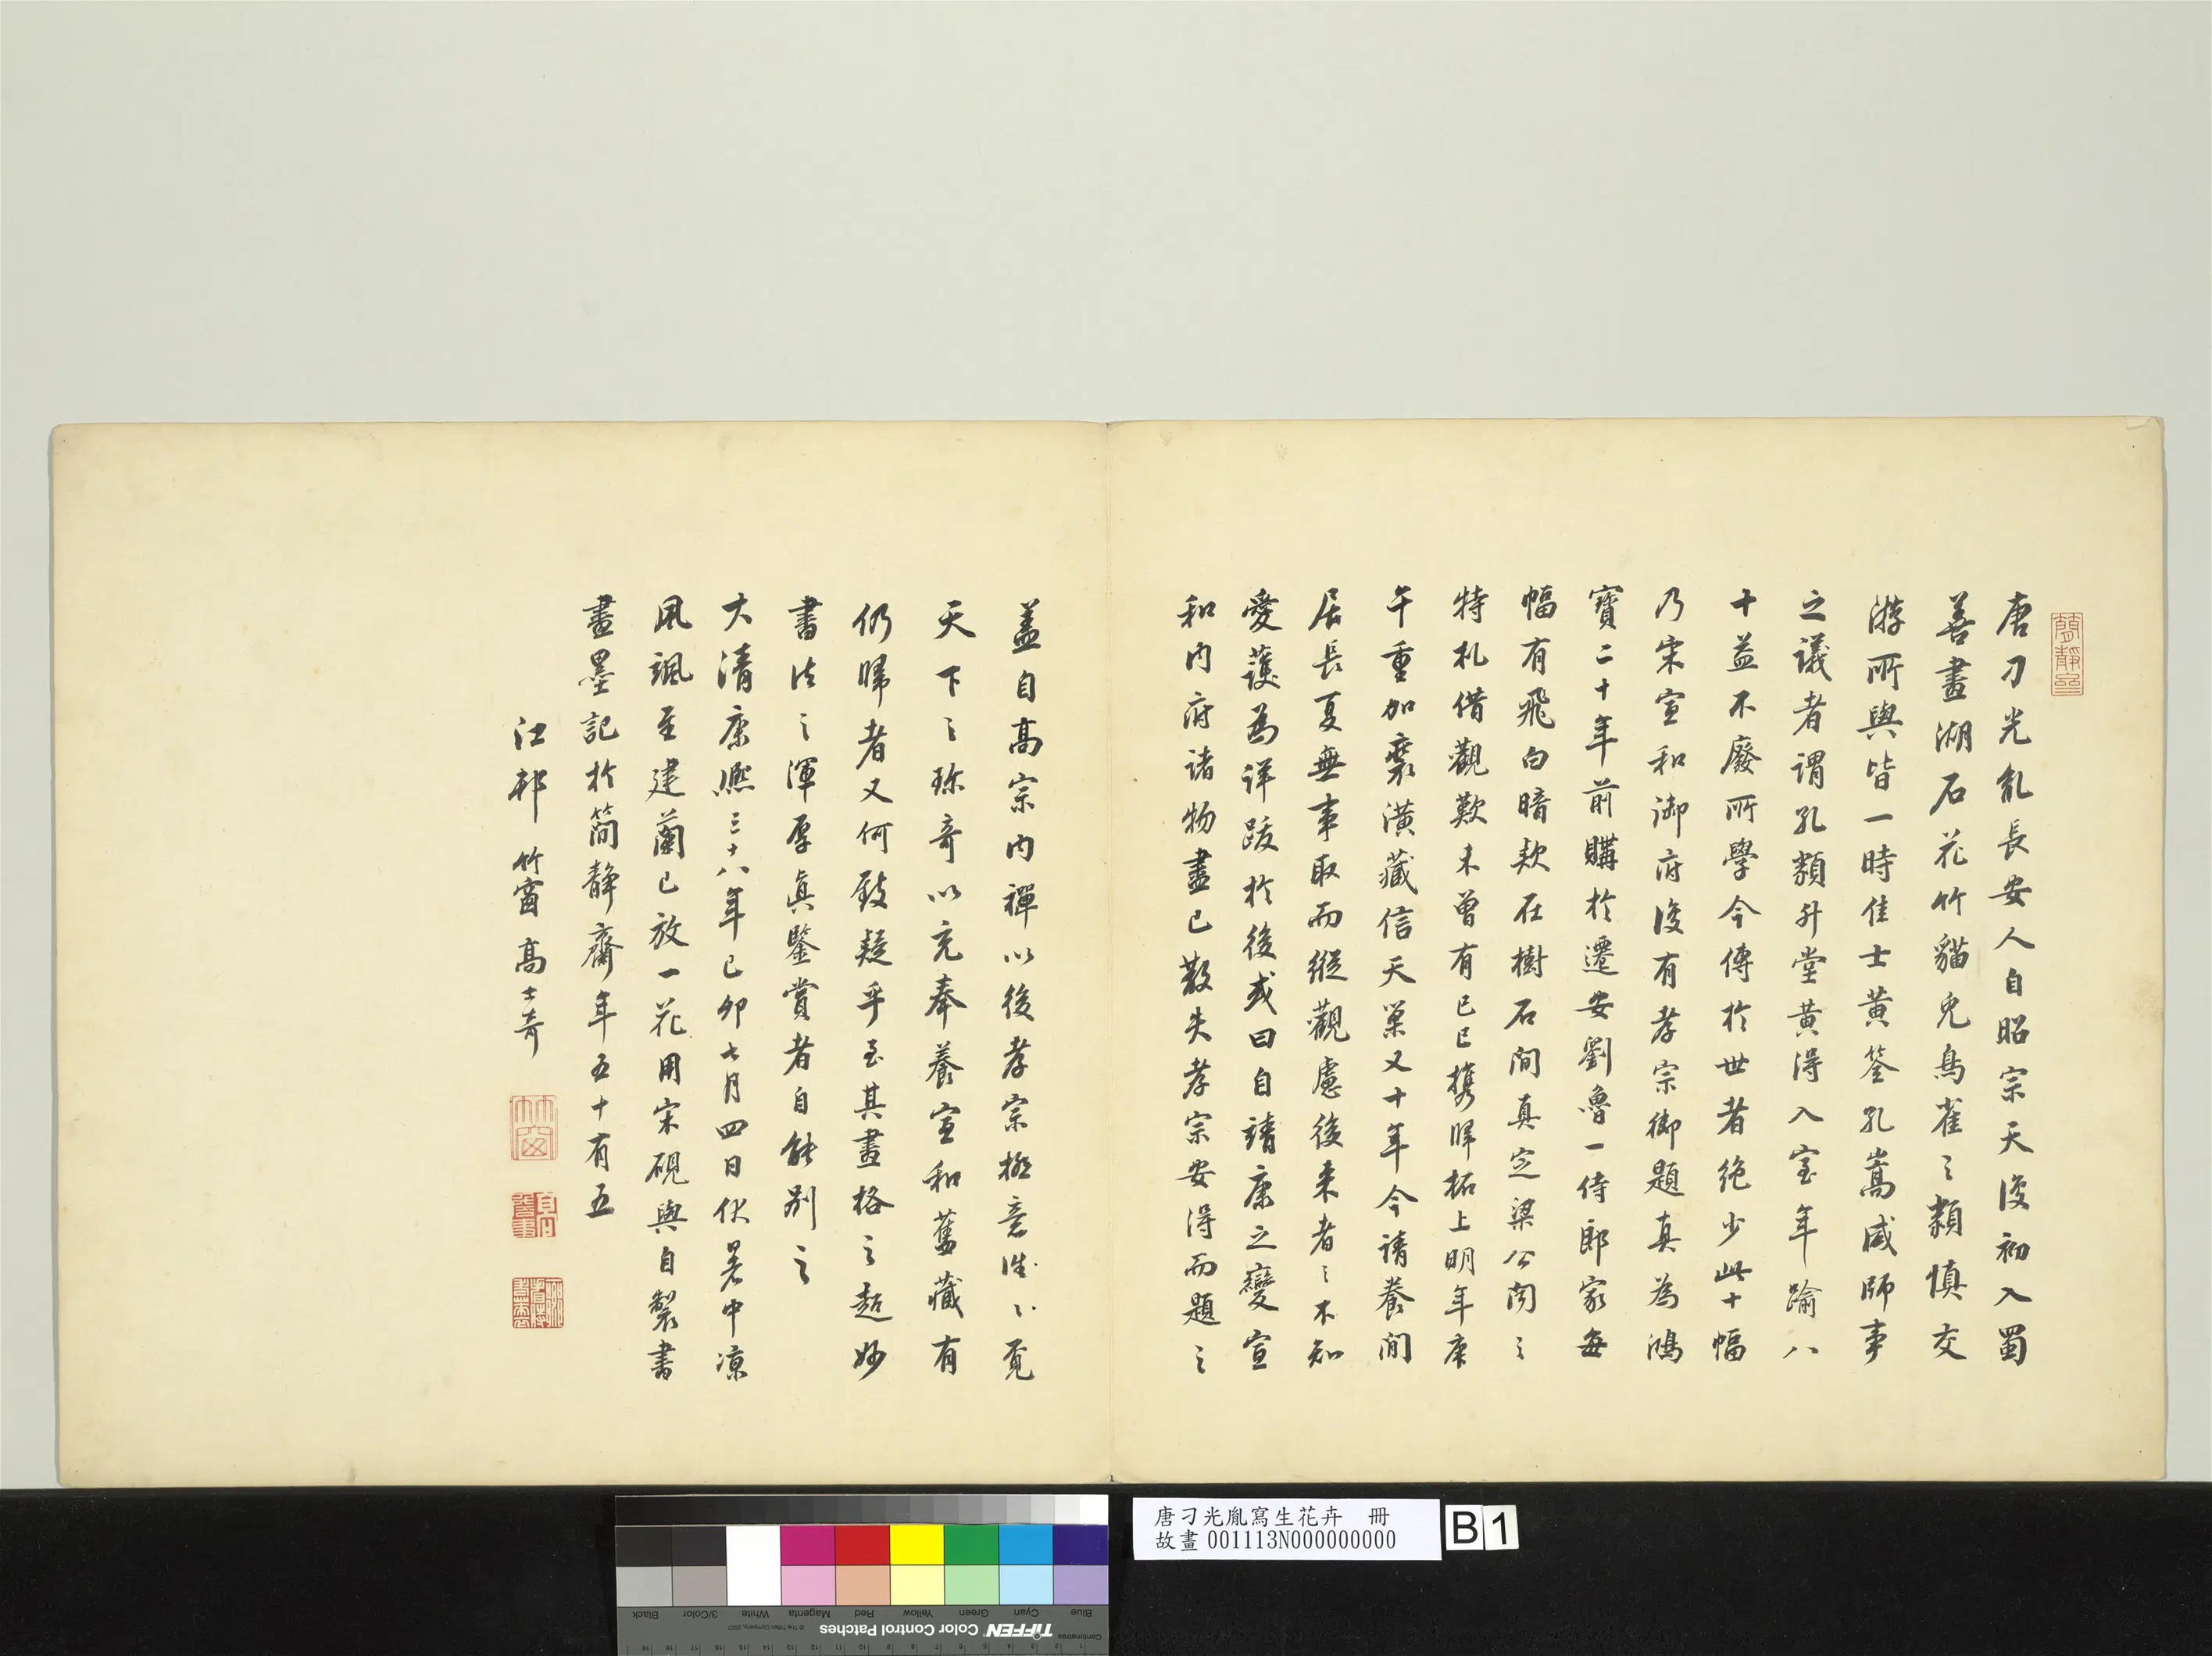 簡靜齋
唐刁光胤長安人自昭宗天復初入蜀
善畫湖石花竹貓兔鳥雀之類慎交
游所與皆一時佳士黃筌孔嵩咸師事
之議者謂孔類升堂黃得入室年踰八
十益不廢所學今傳於世者絕少此十幅
乃宋宣和御府後有孝宗御題真為鴻
寶二十年前購於遷安劉魯一侍郎家每
幅有飛白暗款在樹石間真定梁公聞之
特札借觀歎未曾有己巳攜歸柘上明年庚
午重加裝潢藏信天巢又十年今請養閒
居長夏無事取而縱觀慮後來者之不知
愛護為詳跋於後或曰自靖康之變宣
和內府諸物盡已散失孝宗安得而題之
蓋自高宗內禪以後孝宗極意涯涘覓
天下之珍奇以充奉養宣和舊藏有
仍歸者又何致疑乎至其畫格之超妙
書法之渾厚真鑒賞者自能別之
大清康熙三十八年己卯七月四日伏暑中涼
風颯至建蘭已放一花用宋硯與自製書
畫墨記於簡靜齋年五十有五
江邨竹窗高士奇
竹窗
唐刁光胤寫生花卉 冊
故畫 001113N000000000
B 1
TIFFEN Color Control Patches
© The Tiffen Company, 2007
Blue Cyan Green Yellow Red Magenta White 3/Color Black
Centimetres